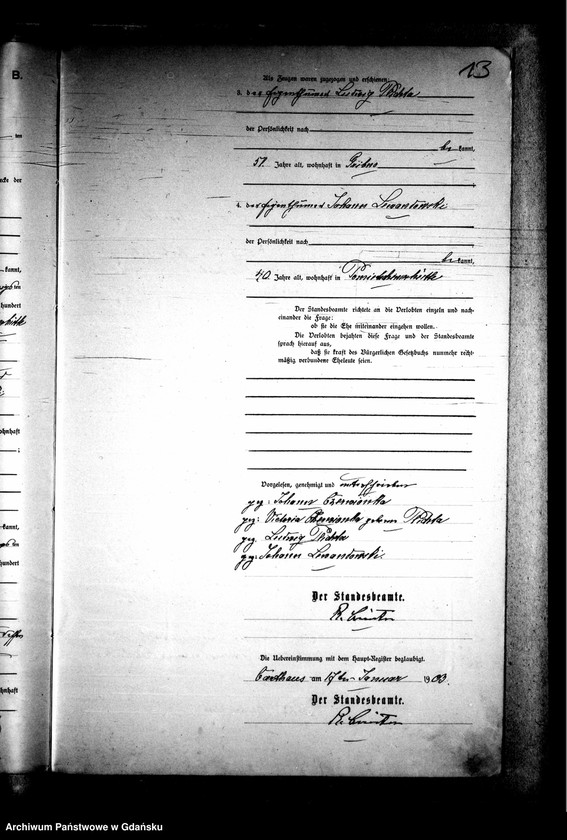 B.
13
Als Zeugen waren zugezogen und erschienen:
3. der Eigenthümer Ludwig
der Persönlichkeit nach
be kannt,
57 Jahre alt, wohnhaft in
4. der Eigenthümer Johann Lewantowski
der Persönlichkeit nach
be kannt,
40 Jahre alt, wohnhaft in
Der Standesbeamte richtete an die Verlobten einzeln und nach-
einander die Frage:
ob sie die Ehe miteinander eingehen wollen.
Die Verlobten bejahten diese Frage und der Standesbeamte
sprach hierauf aus,
daß sie kraft des Bürgerlichen Gesetzbuchs nunmehr recht-
mäßig verbundene Eheleute seien.
Vorgelesen, genehmigt und unterschrieben
gez: Johann Czerwionka
gez: Victoria Czerwionka geborene
gez: Ludwig
gez: Johann Lewantowski.
Der Standesbeamte.
Die Uebereinstimmung mit dem Haupt-Register beglaubigt.
Carthaus am 17ten Januar 1903.
Der Standesbeamte.
Archiwum Państwowe w Gdańsku